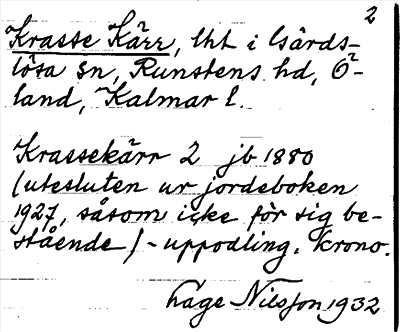 2
Krasse Kärr, lht i Gårds-
lösa sn, Runstens hd, Ö-
land, Kalmar l.
Krassekärr 2 jb 1880
(utesluten ur jordeboken
1927, såsom icke för sig be-
stående) - uppodling. krono.
Lage Nilsson 1932